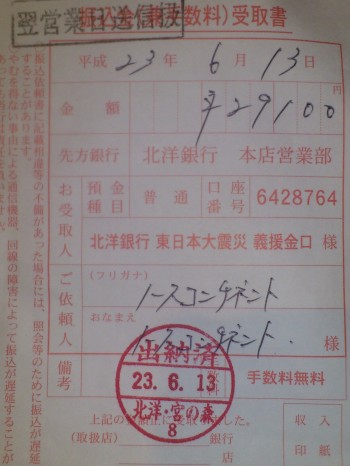 翌営業日送信扱
振込金(兼手数料)受取書
平成 23 年 6 月 13 日
金額 ¥29100
先方銀行 北洋銀行 本店営業部
お受取人
預金種目 普通 口座番号 6428764
北洋銀行 東日本大震災 義援金口 様
ご依頼人
(フリガナ)
ノースコンチネント
おなまえ
ノースコンチネント 様
備考
手数料無料
出納済
23.6.13
北洋・宮の森
8
(取扱店) 銀行 店
収入印紙
振込依頼書に記載相違等の不備があった場合には、照会等のために振込が遅延
することがあります。
やむを得ない事由による通信機器、回線の障害によって振込が遅延することが